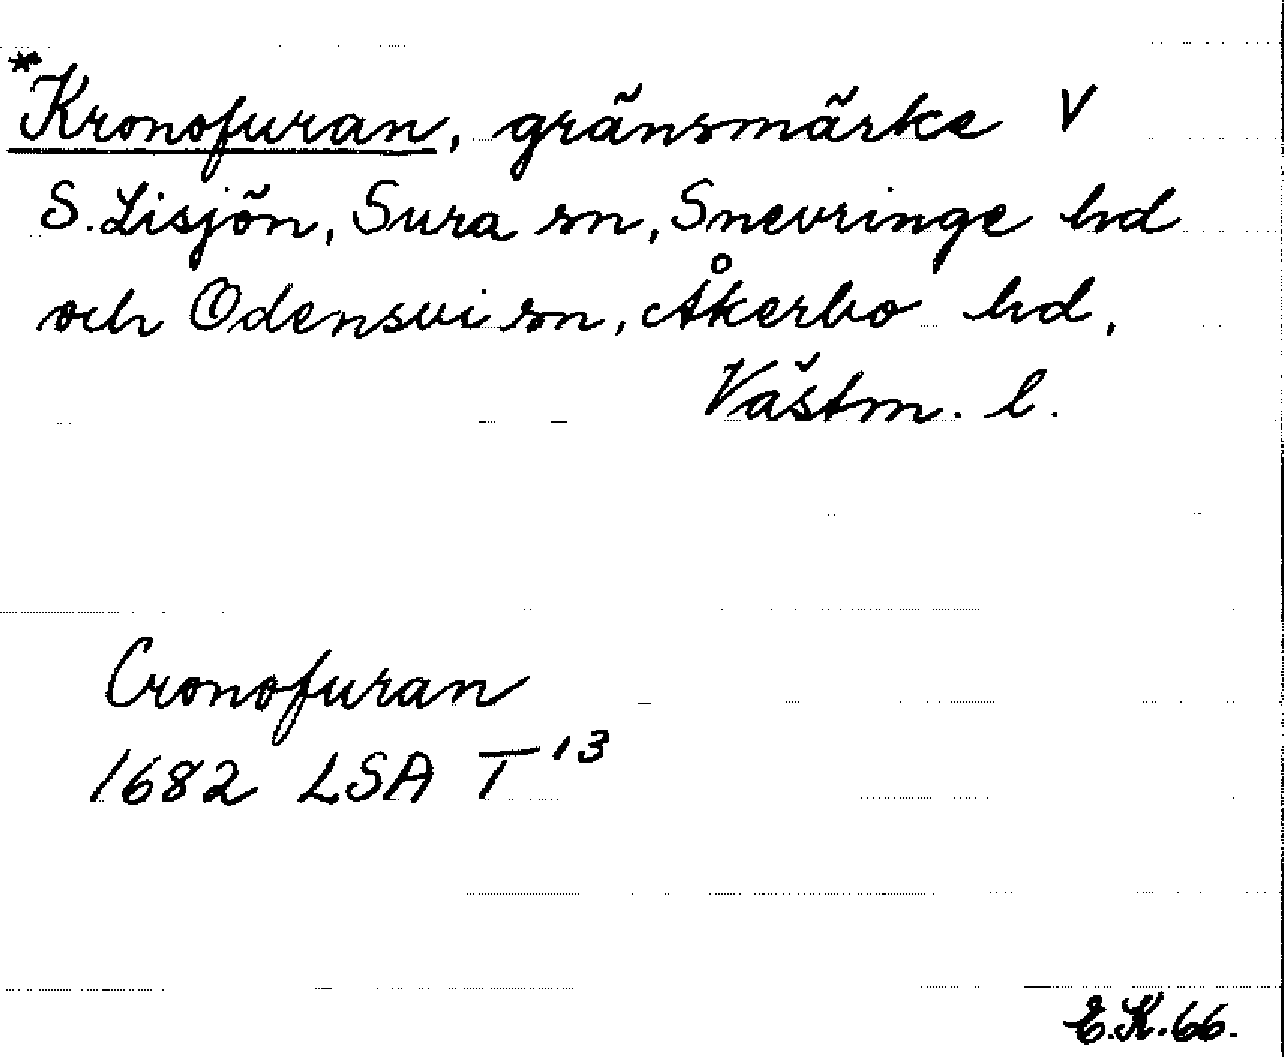 *Kronofuran, gränsmärke V
S. Lisjön, Sura sn, Snevringe hd
och Odensvi sn, Åkerbo hd,
Västm. l.
Cronofuran
1682 LSA T¹³
E.K.66.